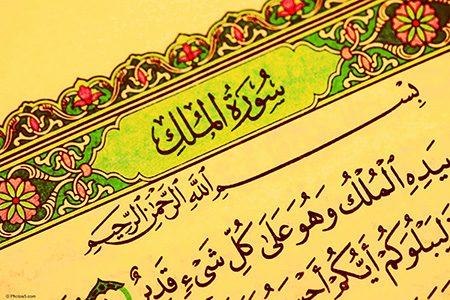 سُورَةُ الْمُلْكِ
بِسْمِ اللَّهِ الرَّحْمَٰنِ الرَّحِيمِ
بِيَدِهِ الْمُلْكُ وَهُوَ عَلَىٰ كُلِّ شَيْءٍ قَدِيرٌ
لِيَبْلُوَكُمْ أَيُّكُمْ أَحْسَنُ
© Photoa5.com